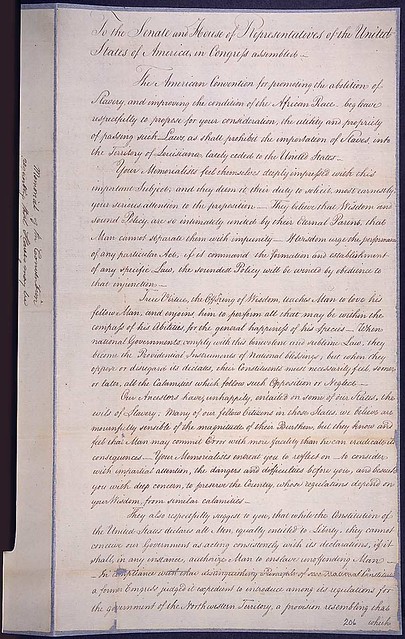 To the Senate and House of Representatives of the United
States of America, in Congress assembled —
The American Convention for promoting the abolition of
Slavery, and improving the condition of the African Race beg leave
respectfully to propose for your consideration, the utility and propriety
of passing such Laws, as shall prohibit the importation of Slaves, into
the Territory of Louisiana, lately ceded to the United States —
Your Memorialists feel themselves deeply impressed with this
important Subject, and they deem it their duty to solicit, most earnestly
your serious attention to the proposition — They believe that Wisdom and
sound Policy, are so intimately united by their Eternal Parent, that
Man cannot separate them with impunity — If Wisdom urge the performance
of any particular Act, or if it command the formation and establishment
of any specific Law, the soundest Policy will be evinced by obedience to
that injunction —
True Virtue, the Offspring of Wisdom, teaches Man to love his
fellow Man, and enjoins him to perform all that may be within the
compass of his Abilities for the general happiness of his Species — When
national Governments comply with this benevolent and sublime Law, they
become the Providential Instruments of National blessings, but when they
oppose or disregard its dictates, their Constituents must necessarily feel, sooner
or later, all the Calamities which follow such Opposition or Neglect —
Our Ancestors have, unhappily, entailed on some of our States, the
evils of Slavery; Many of our fellow Citizens in those States, we believe are
mournfully sensible of the magnitude of their Burthen, but they know and
feel that Man may commit Error with more facility than he can eradicate its
consequences — Your Memorialists entreat you to reflect on — to consider
with impartial attention, the dangers and difficulties before you, and beseech
you with deep concern, to preserve the Country, whose regulations depend on
your Wisdom, from similar calamities —
They also respectfully suggest to you, that while the Constitution of
the United States declares all Men, equally entitled to Liberty, they cannot
conceive our Government as acting consistently with its declarations, if it
shall, in any instance, authorize Man to enslave unoffending Man —
— In compliance with this distinguishing Principle of our National Constitution
a former Congress judged it expedient to introduce among its regulations for
the government of the Northwestern Territory, a provision resembling that
206 which
Memorial of the Convention